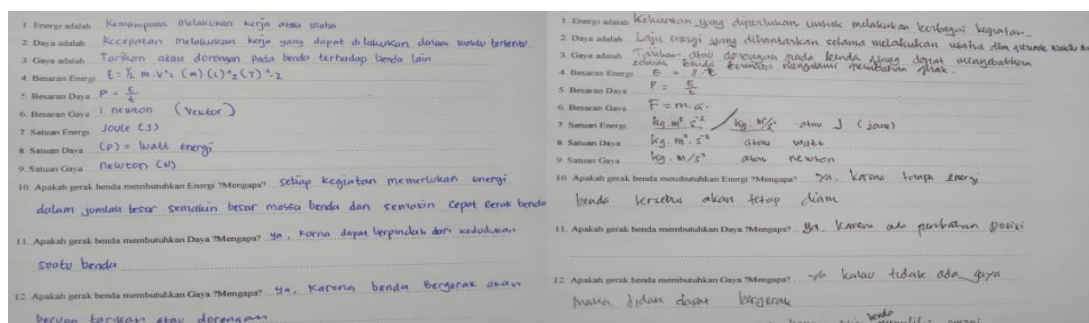 1 Energi adalah Kemampuan melakukan kerja atau usaha
2. Daya adalah Kecepatan melakukan kerja yang dapat dilakukan dalam waktu tertentu.
3. Gaya adalah Tarikan atau dorongan pada benda terhadap benda lain
4. Besaran Energi E = ½ m.v^2 = (m) (L)^2 (T)^-2
5. Besaran Daya P = E/t
6. Besaran Gaya 1 newton (Vektor)
7. Satuan Energi Joule (J)
8. Satuan Daya (P) = Watt energi
9. Satuan Gaya newton (N)
10. Apakah gerak benda membutuhkan Energi ?Mengapa? setiap kegiatan memerlukan energi
dalam jumlah besar semakin besar massa benda dan semakin cepat gerak benda
11. Apakah gerak benda membutuhkan Daya ?Mengapa? ya, karna dapat berpindah dari kedudukan
suatu benda
12. Apakah gerak benda membutuhkan Gaya ?Mengapa? ya, karena benda Bergerak akan
tarikan atau dorongan
1. Energi adalah Kekuatan yang diperlukan untuk melakukan berbagai kegiatan.
2. Daya adalah Laju energi yang dihantarkan selama melakukan usaha dlm periode waktu
3. Gaya adalah Tarikan atau dorongan pada benda yang dapat menyebabkan
sebuah benda bermassa mengalami perubahan gerak.
4. Besaran Energi E = P.t
5. Besaran Daya P = E/t
6. Besaran Gaya F = m.a.
7. Satuan Energi kg.m².s⁻² / kg.m²/s² atau J (joule)
8. Satuan Daya kg.m².s⁻³ atau watt
9. Satuan Gaya kg.m/s² atau newton
10. Apakah gerak benda membutuhkan Energi ?Mengapa? ya. karena tanpa energi
benda tersebut akan tetap diam
11. Apakah gerak benda membutuhkan Daya ?Mengapa? ya, karena ada perubahan posisi
12. Apakah gerak benda membutuhkan Gaya ?Mengapa? ya kalau tidak ada gaya
maka tidak dapat bergerak
benda